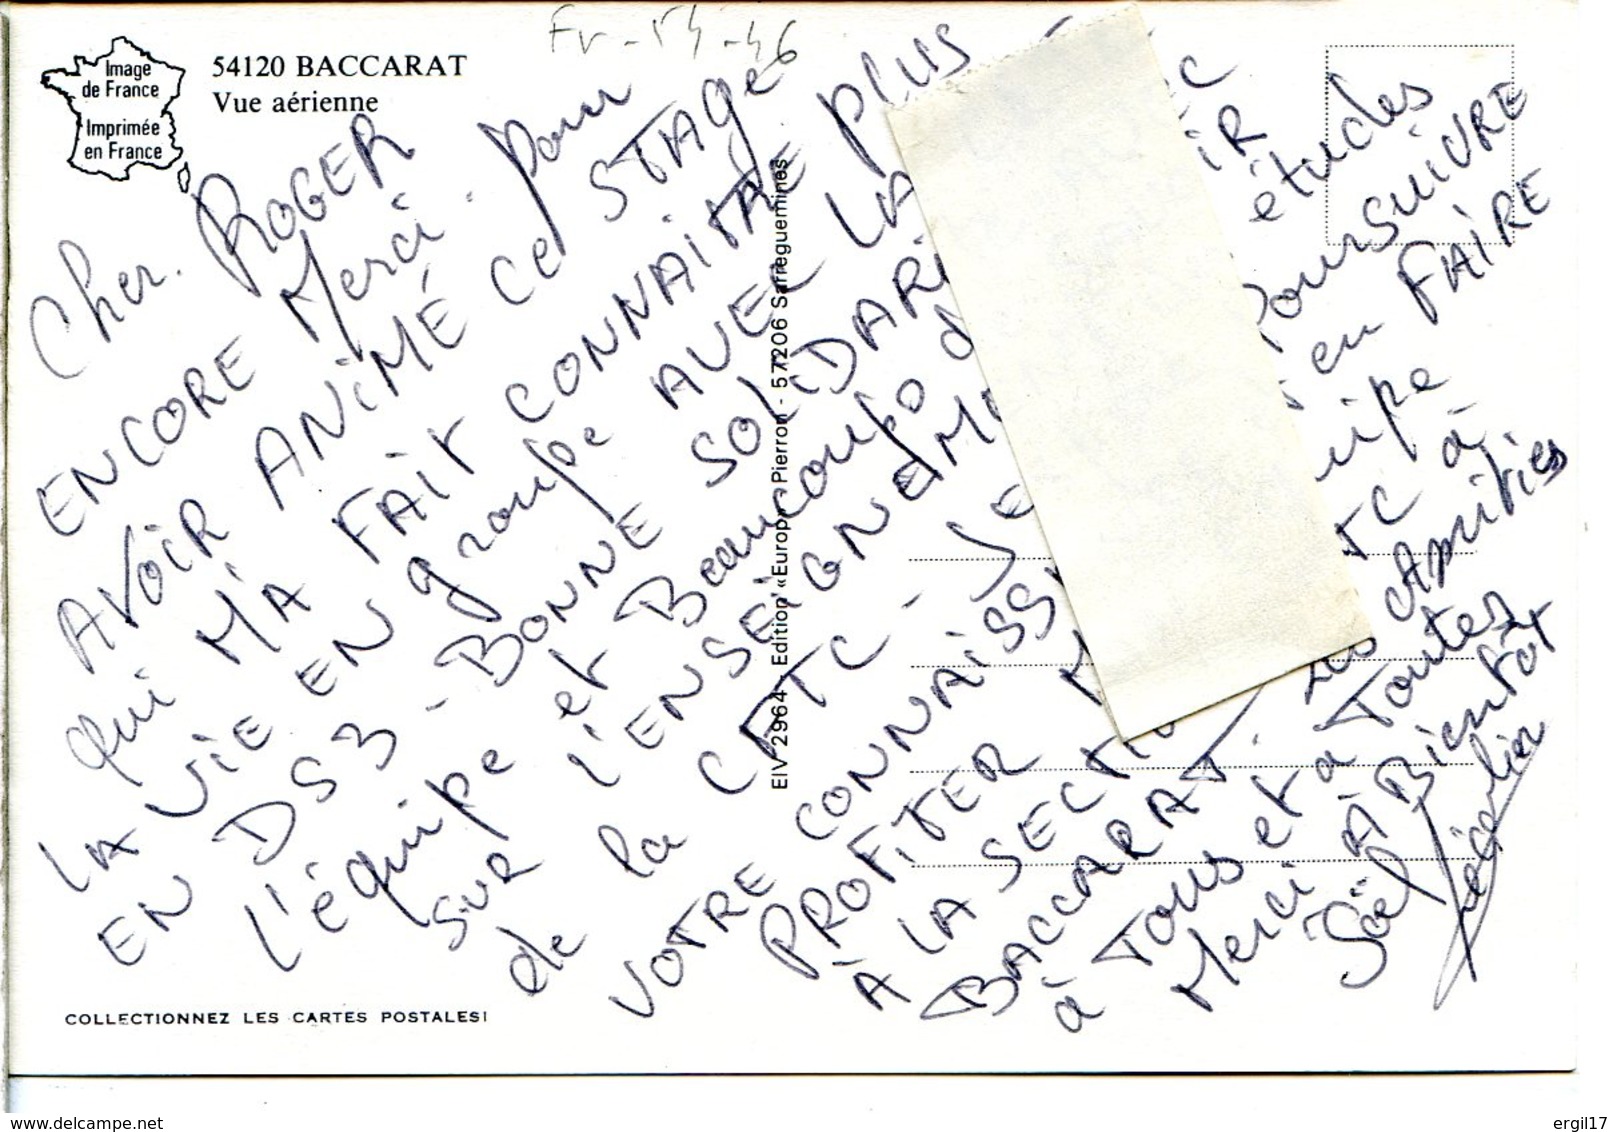 Fr-54-46
Image
de France
Imprimée
en France
54120 BACCARAT
Vue aérienne
Cher. ROGER
ENCORE Merci. pour
AVOIR ANIMÉ Ce STAGe
qui M'A FAIT CONNAITRE plus
LA VIE EN groupe AVEC LA
EN DS3 - BONNE SOLiDARi
L'équipe et Beaucoup d
SUR L'ENSEIGNEM
de la CFTC - Je
VOTRE CONNAISS
PROFiTER
À LA SECTI
BACCARAT. Les Amitiés
à Tous et à Toutes
Merci À Bientôt
Joël
iR
études
Poursuivre
en FAIRE
uipe
TC à
EIV 2964 - Edition «Europ» Pierron - 57206 Sarreguemines
COLLECTIONNEZ LES CARTES POSTALES!
www.delcampe.net
ergil17